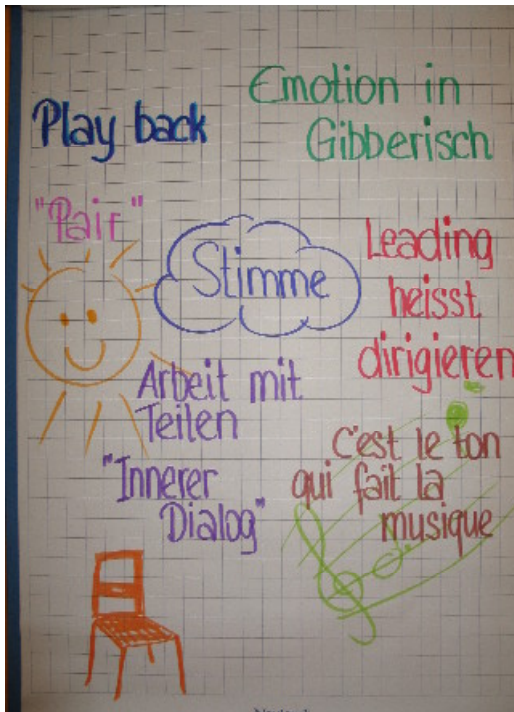 Play back
Emotion in
Gibberisch
"Pair"
Stimme
Leading
heisst
dirigieren
Arbeit mit
Teilen
"Innerer
Dialog"
C'est le ton
qui fait la
musique